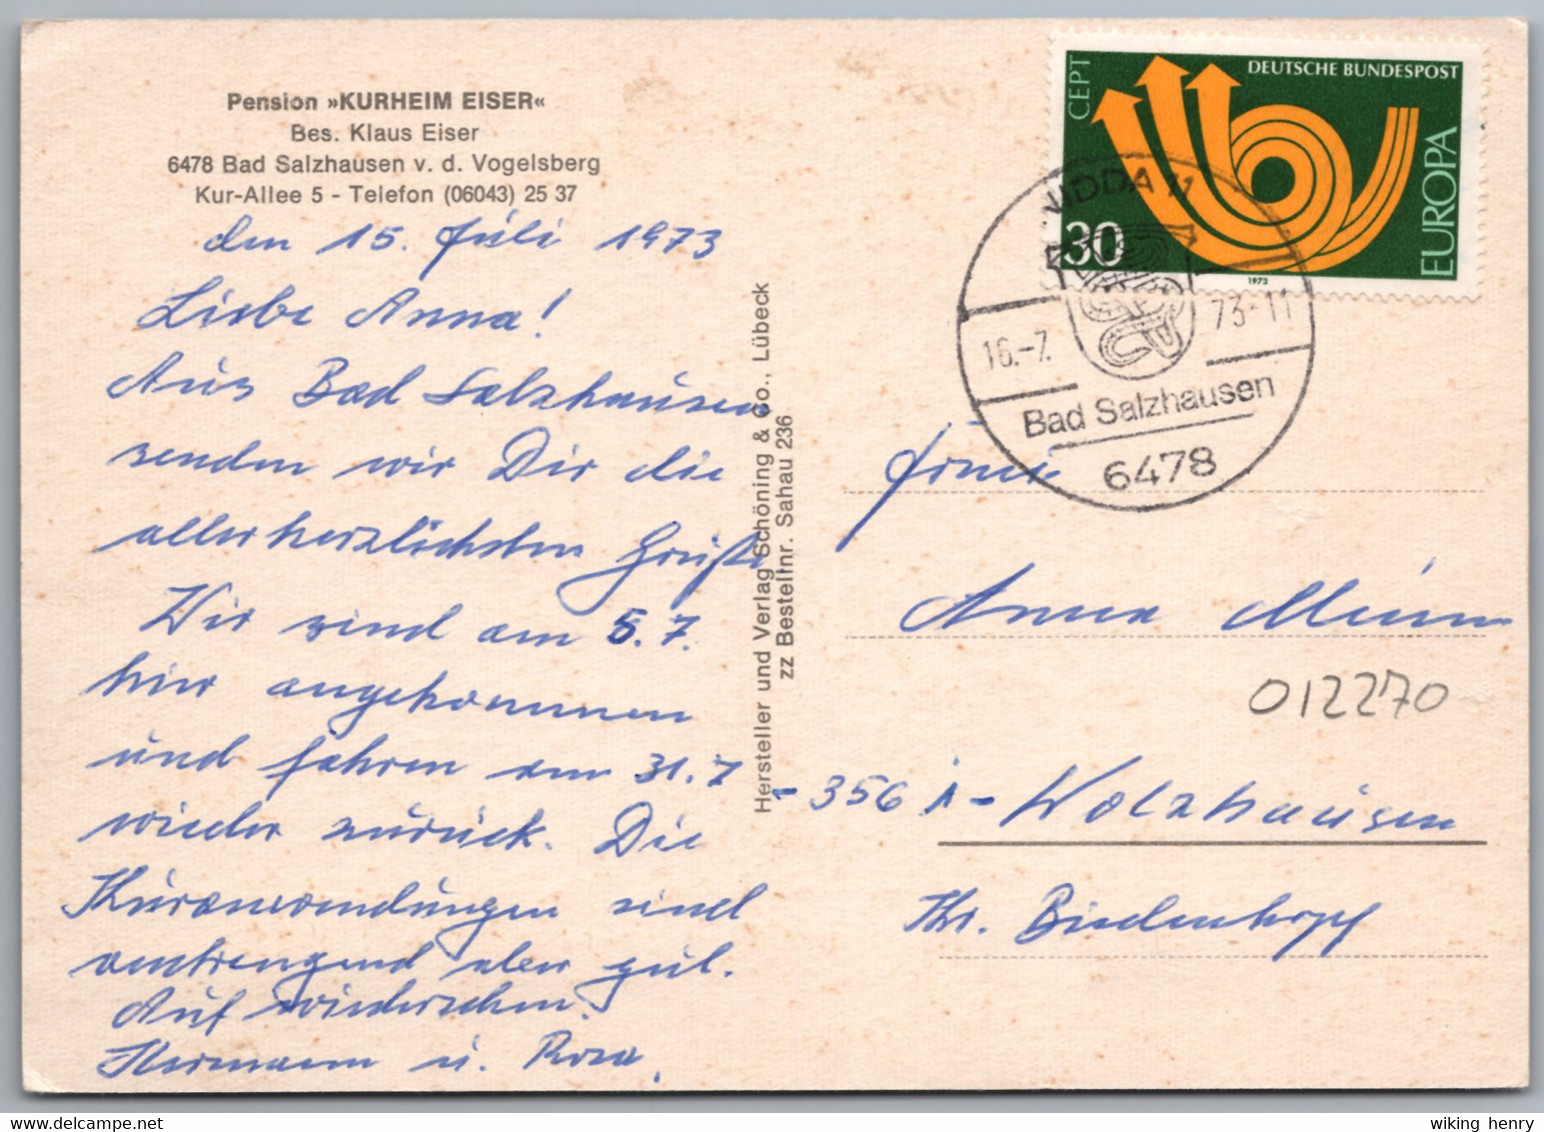 Pension »KURHEIM EISER«
Bes. Klaus Eiser
6478 Bad Salzhausen v. d. Vogelsberg
Kur-Allee 5 - Telefon (06043) 25 37
den 15. Juli 1973
Liebe Anna!
Aus Bad Salzhausen
senden wir Dir die
allerherzlichsten Grüße
Wir sind am 5.7.
hier angekommen
und fahren am 31.7
wieder zurück. Die
Kuranwendungen sind
anstrengend aber gut.
Auf wiedersehen.
Hermann u. Rosa.
Hersteller und Verlag Schöning & Co., Lübeck
zz Bestellnr. Sahau 236
CEPT
DEUTSCHE BUNDESPOST
EUROPA
30
1973
NIDDA 11
16.-7. 73-11
Bad Salzhausen
6478
Frau
Anna
012270
- 356 1 - Wolzhausen
Kr. Biedenkopf
wiking henry